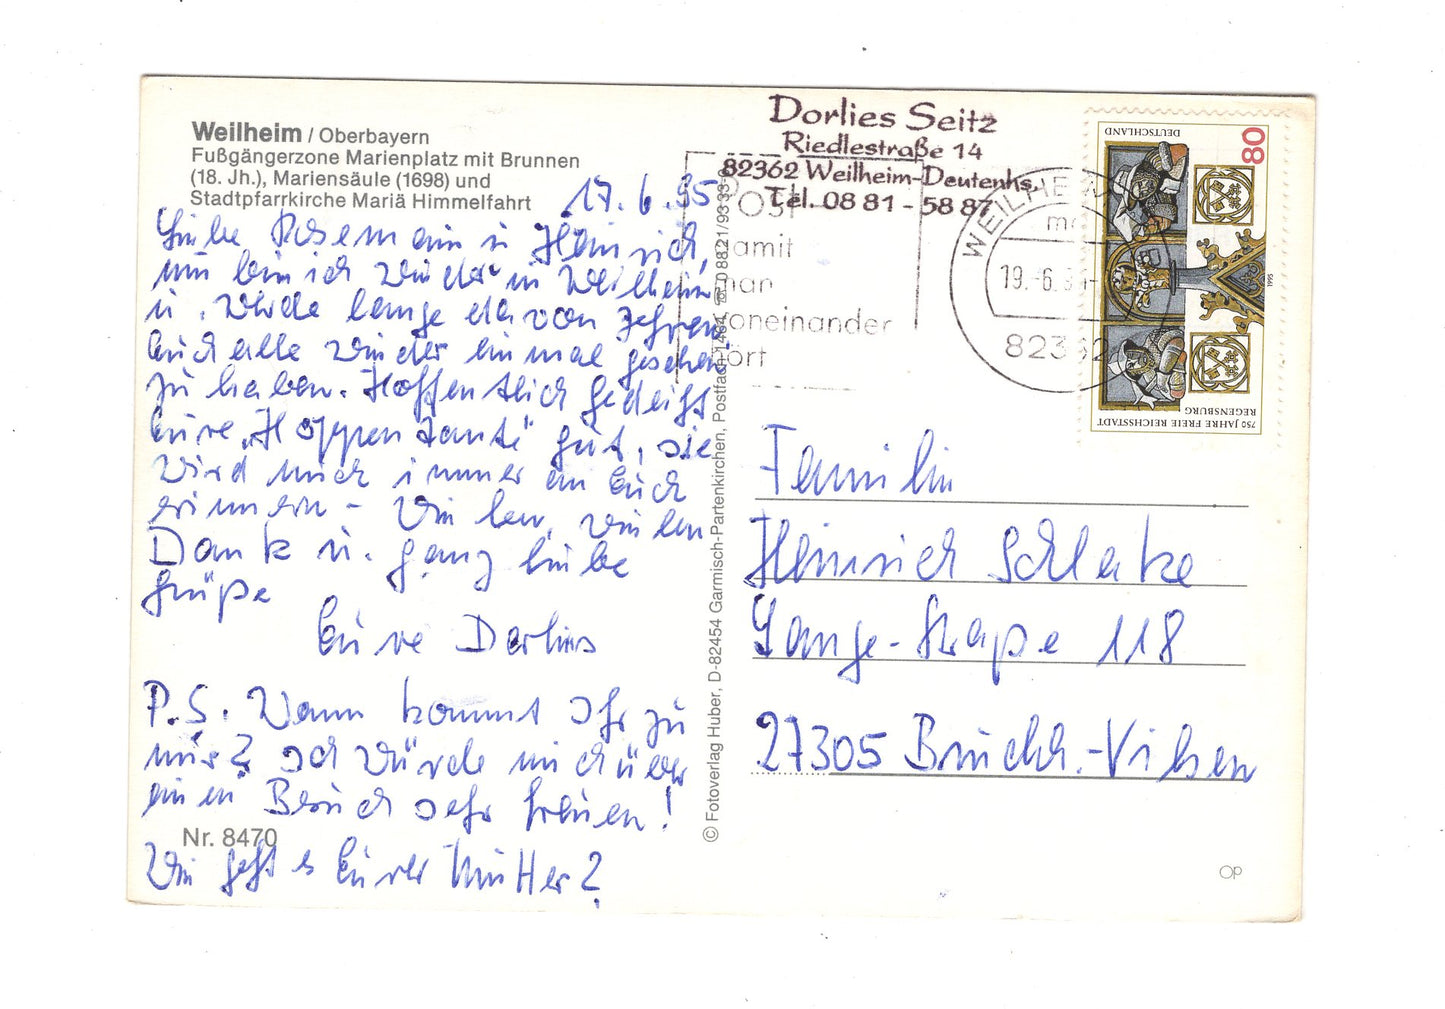 Weilheim / Oberbayern
Fußgängerzone Marienplatz mit Brunnen
(18. Jh.), Mariensäule (1698) und
Stadtpfarrkirche Mariä Himmelfahrt
17. 6. 95
Liebe Rosemarie u Heinrich,
nun bin ich wieder in Weilheim
u. werde lange davon zehren
Euch alle wieder einmal gesehen
zu haben. Hoffentlich gedeiht
Eure „Hoppentante" gut, sie
wird mich immer an Euch
erinnern - Vielen, vielen
Dank u. ganz liebe
Grüße
Eure Dorlies
P.S. Wann kommt Ihr zu
mir? Ich würde mich über
einen Besuch sehr freuen!
Nr. 8470
Wie geht es Eurer Mutter?
© Fotoverlag Huber, D-82454 Garmisch-Partenkirchen, Postfach 1464, ☎ 08821/9333-0
Dorlies Seitz
Riedlestraße 14
82362 Weilheim-Deutenhs.
Tel. 08 81 - 58 87
Post
damit
man
voneinander
hört
WEILHEIM
19.-6.95-
82362
80
DEUTSCHLAND
750 JAHRE FREIE REICHSSTADT
REGENSBURG
1995
Familie
Heinrich Schlake
Lange-Straße 118
27305 Bruchh.-Vilsen
OP